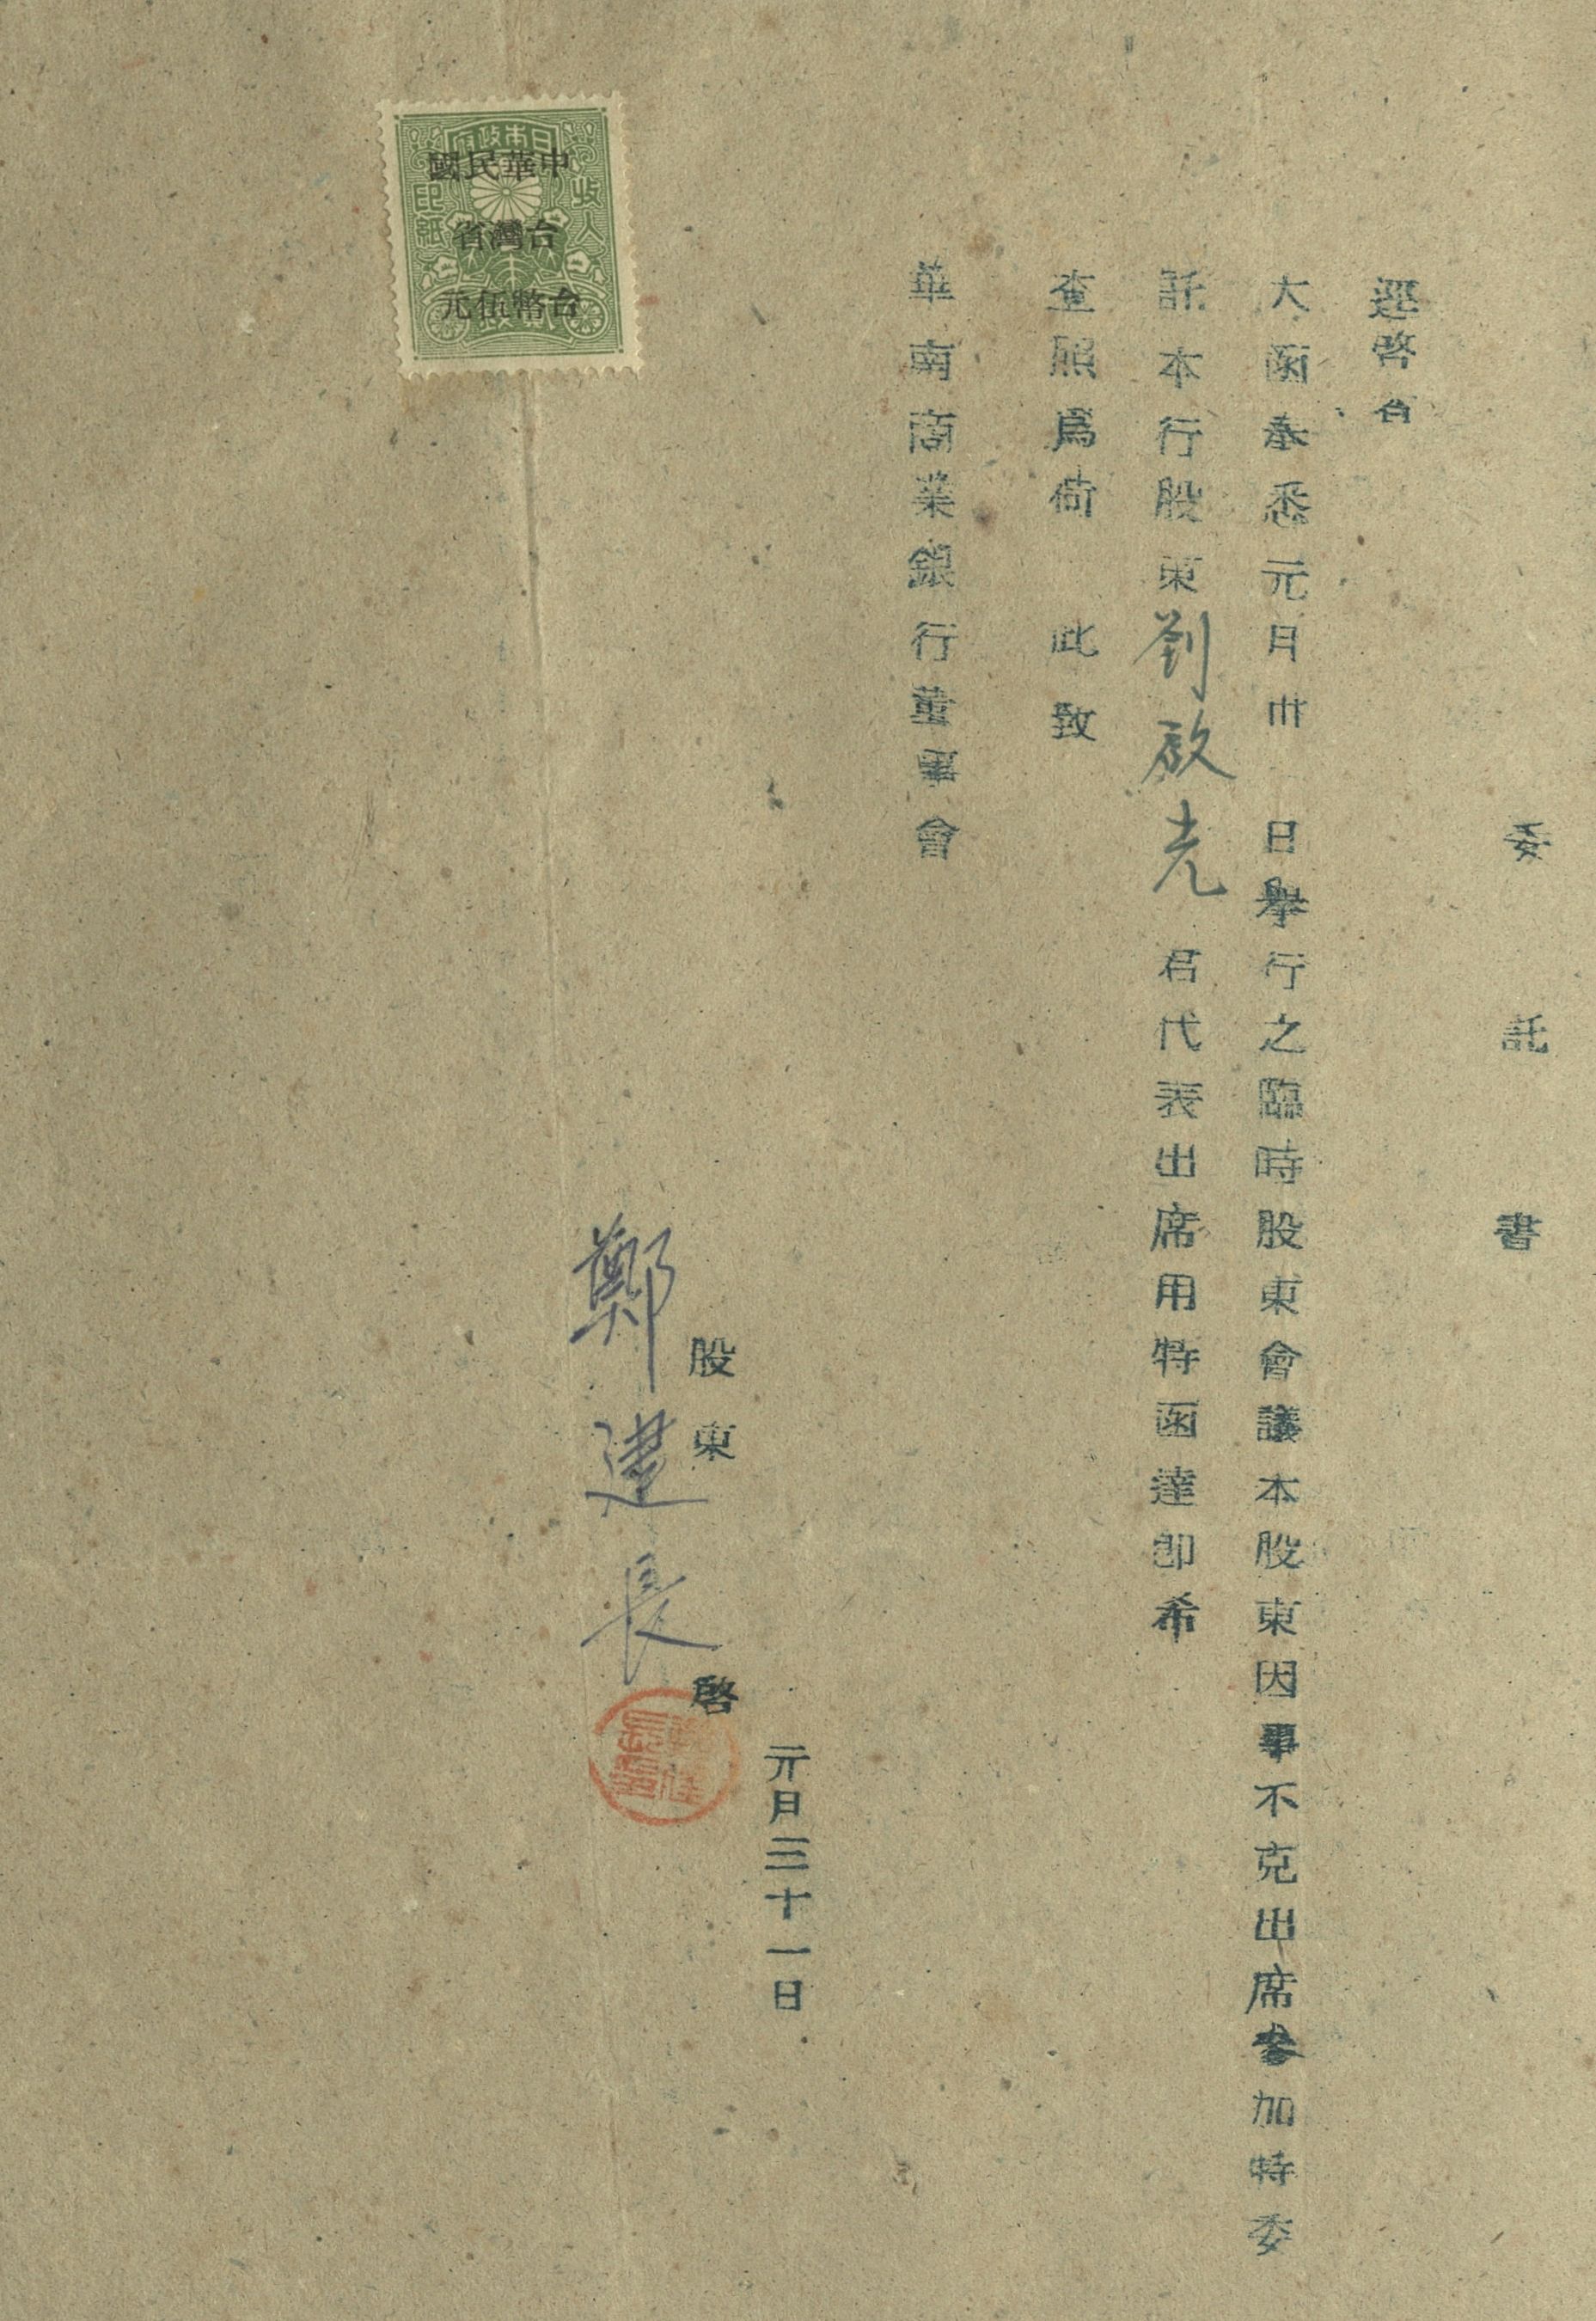 委託書
逕啓者
大函奉悉元月卅日舉行之臨時股東會議本股東因事不克出席參加特委
託本行股東劉啟光君代表出席用特函達卽希
查照爲荷 此致
華南商業銀行董事會
元月三十一日
股東 啓
鄭建長
日本政府
收入
印紙
中華民國
台灣省
台幣伍元